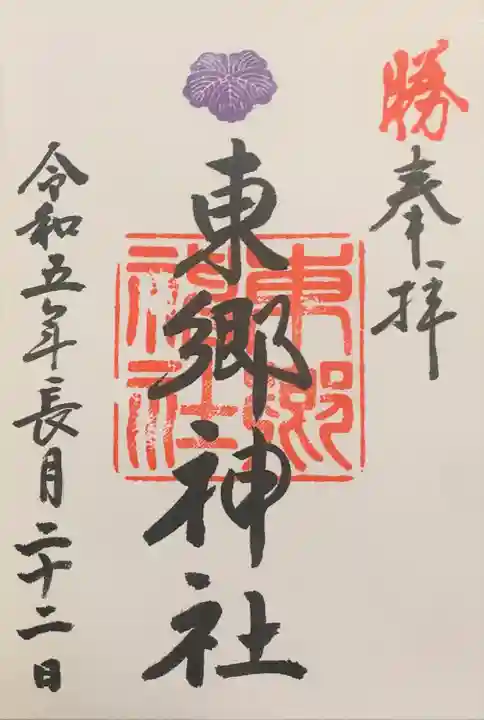 勝
奉拝
東郷神社
東郷神社
令和五年長月二十二日